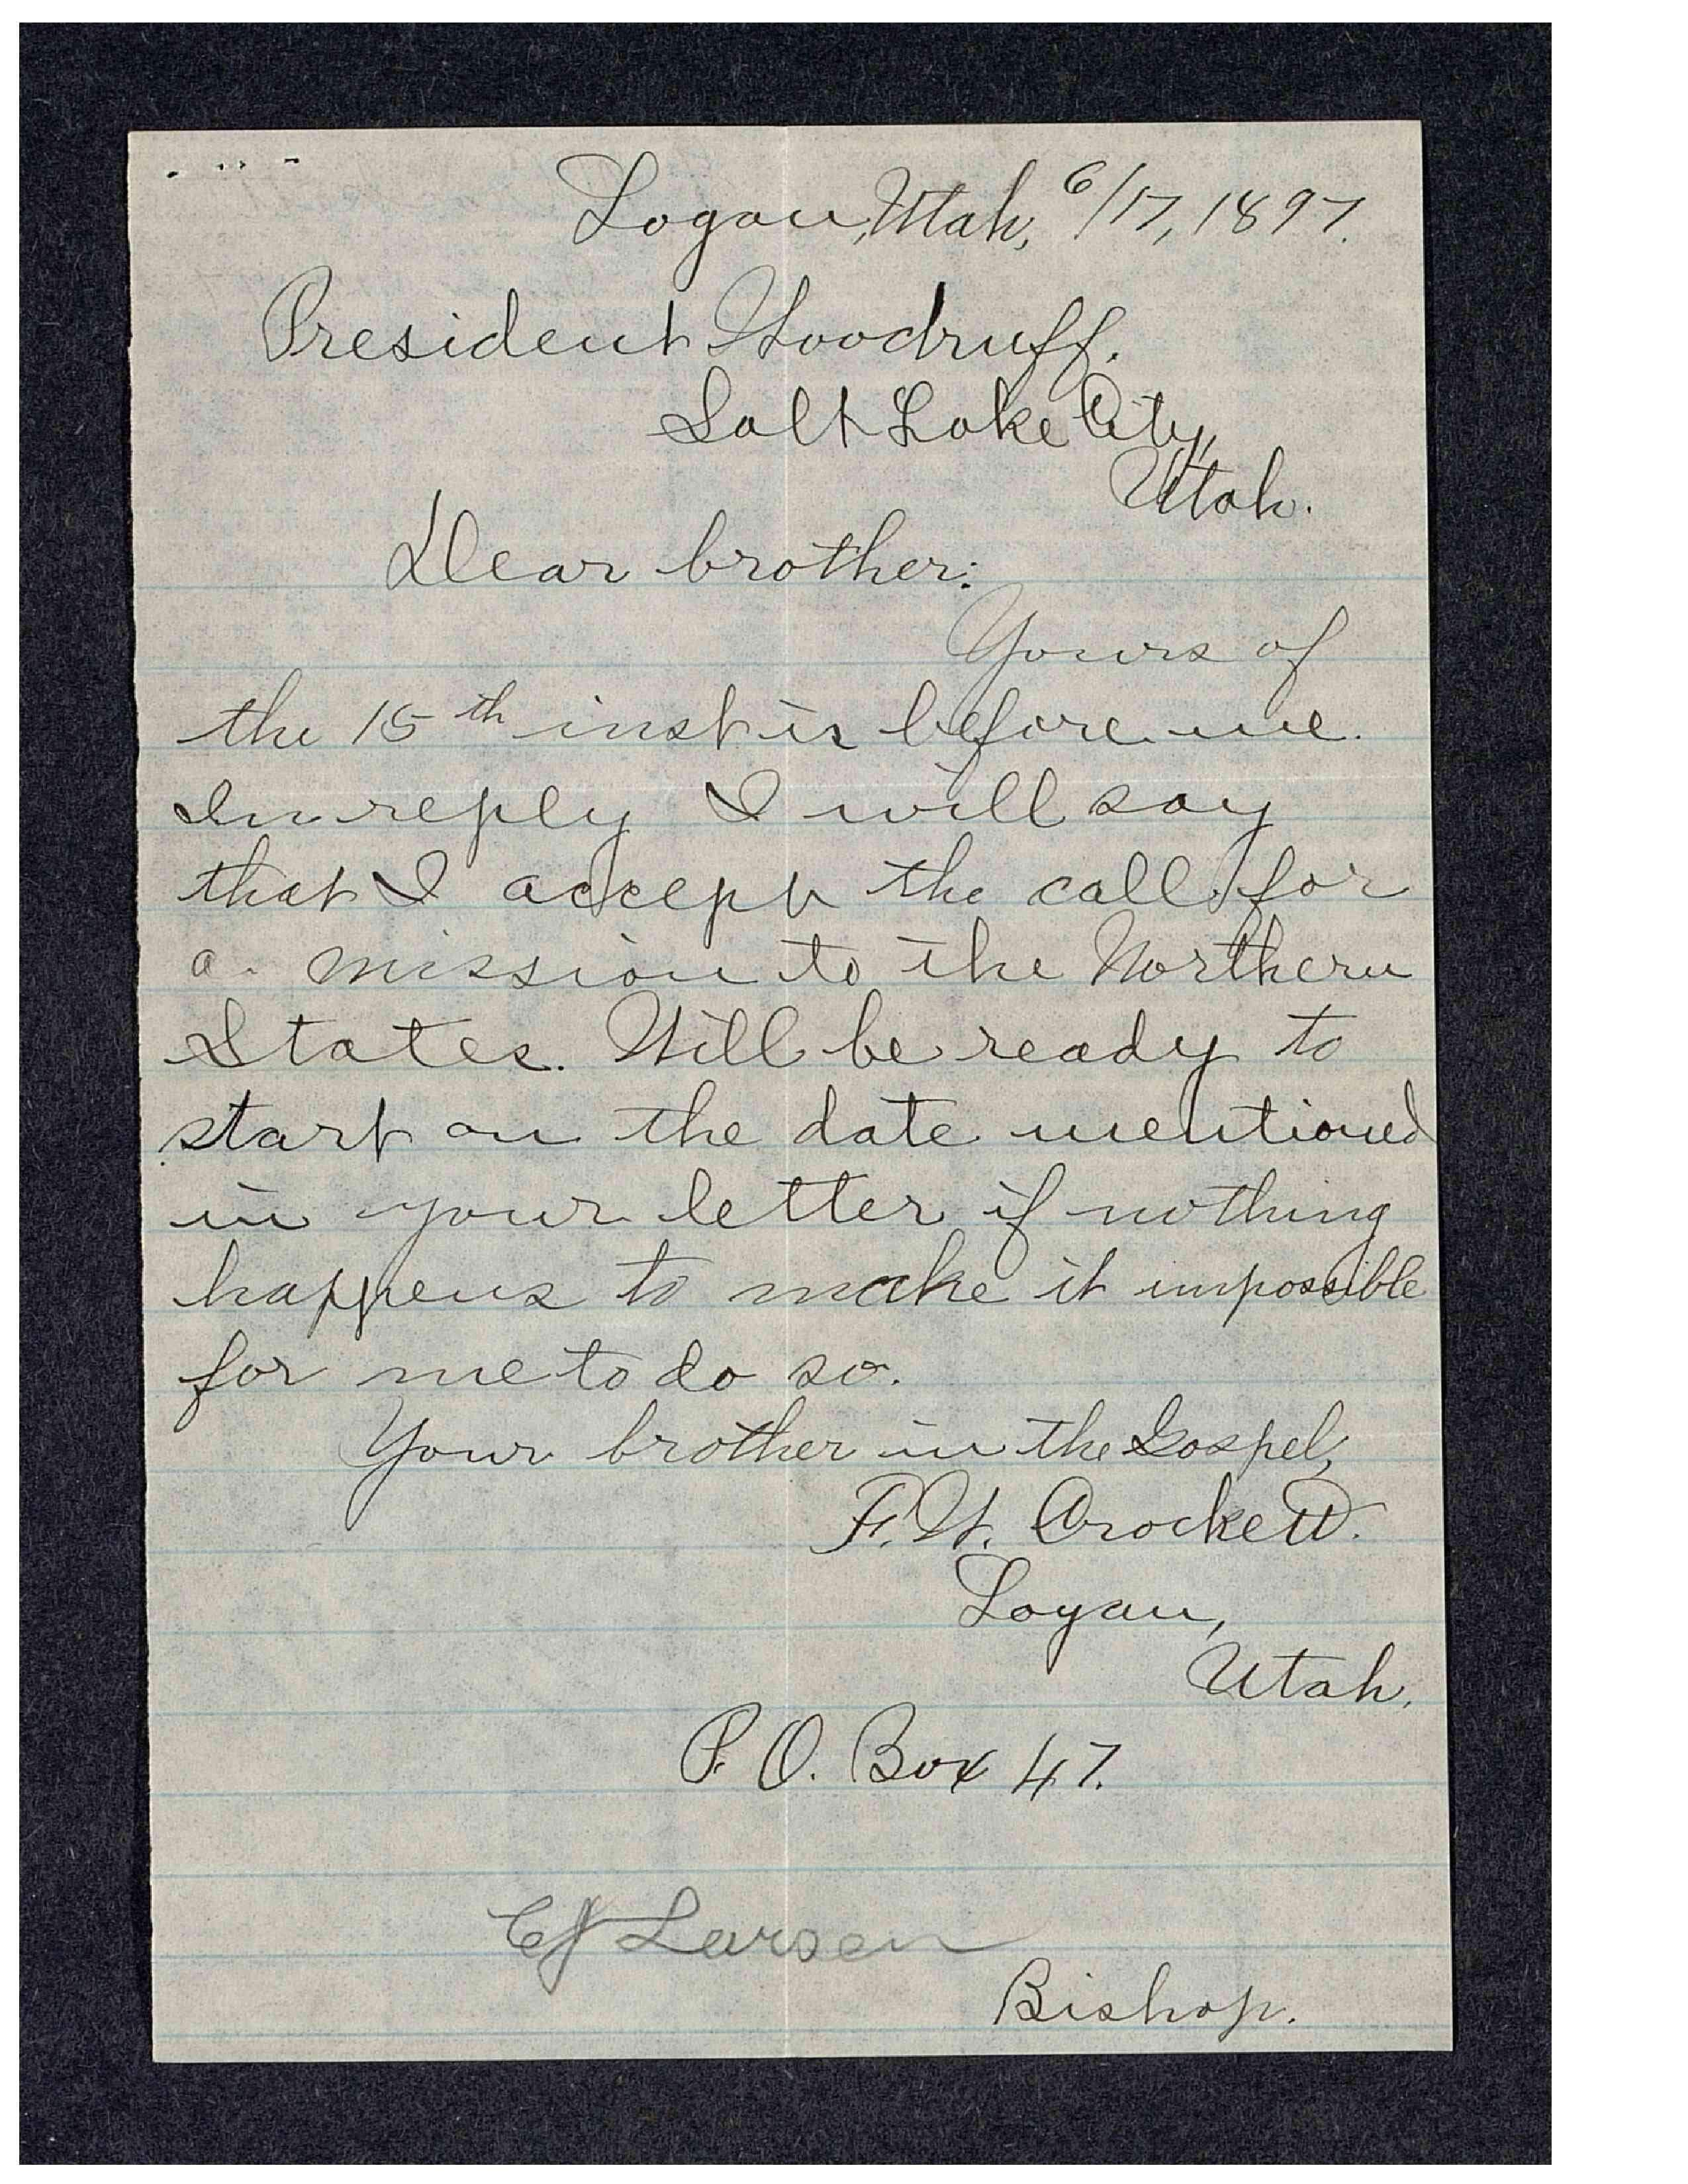 Logan, Utah, 6/17, 1897.
President Woodruff.
Salt Lake City,
Utah.
Dear brother:
Yours of
the 15th inst is before me.
In reply I will say
that I accept the call for
a mission to the Northern
States. Will be ready to
start on the date mentioned
in your letter if nothing
happens to make it impossible
for me to do so.
Your brother in the Gospel,
F. W. Crockett.
Logan,
Utah.
P. O. Box 47.
CJ Larsen
Bishop.